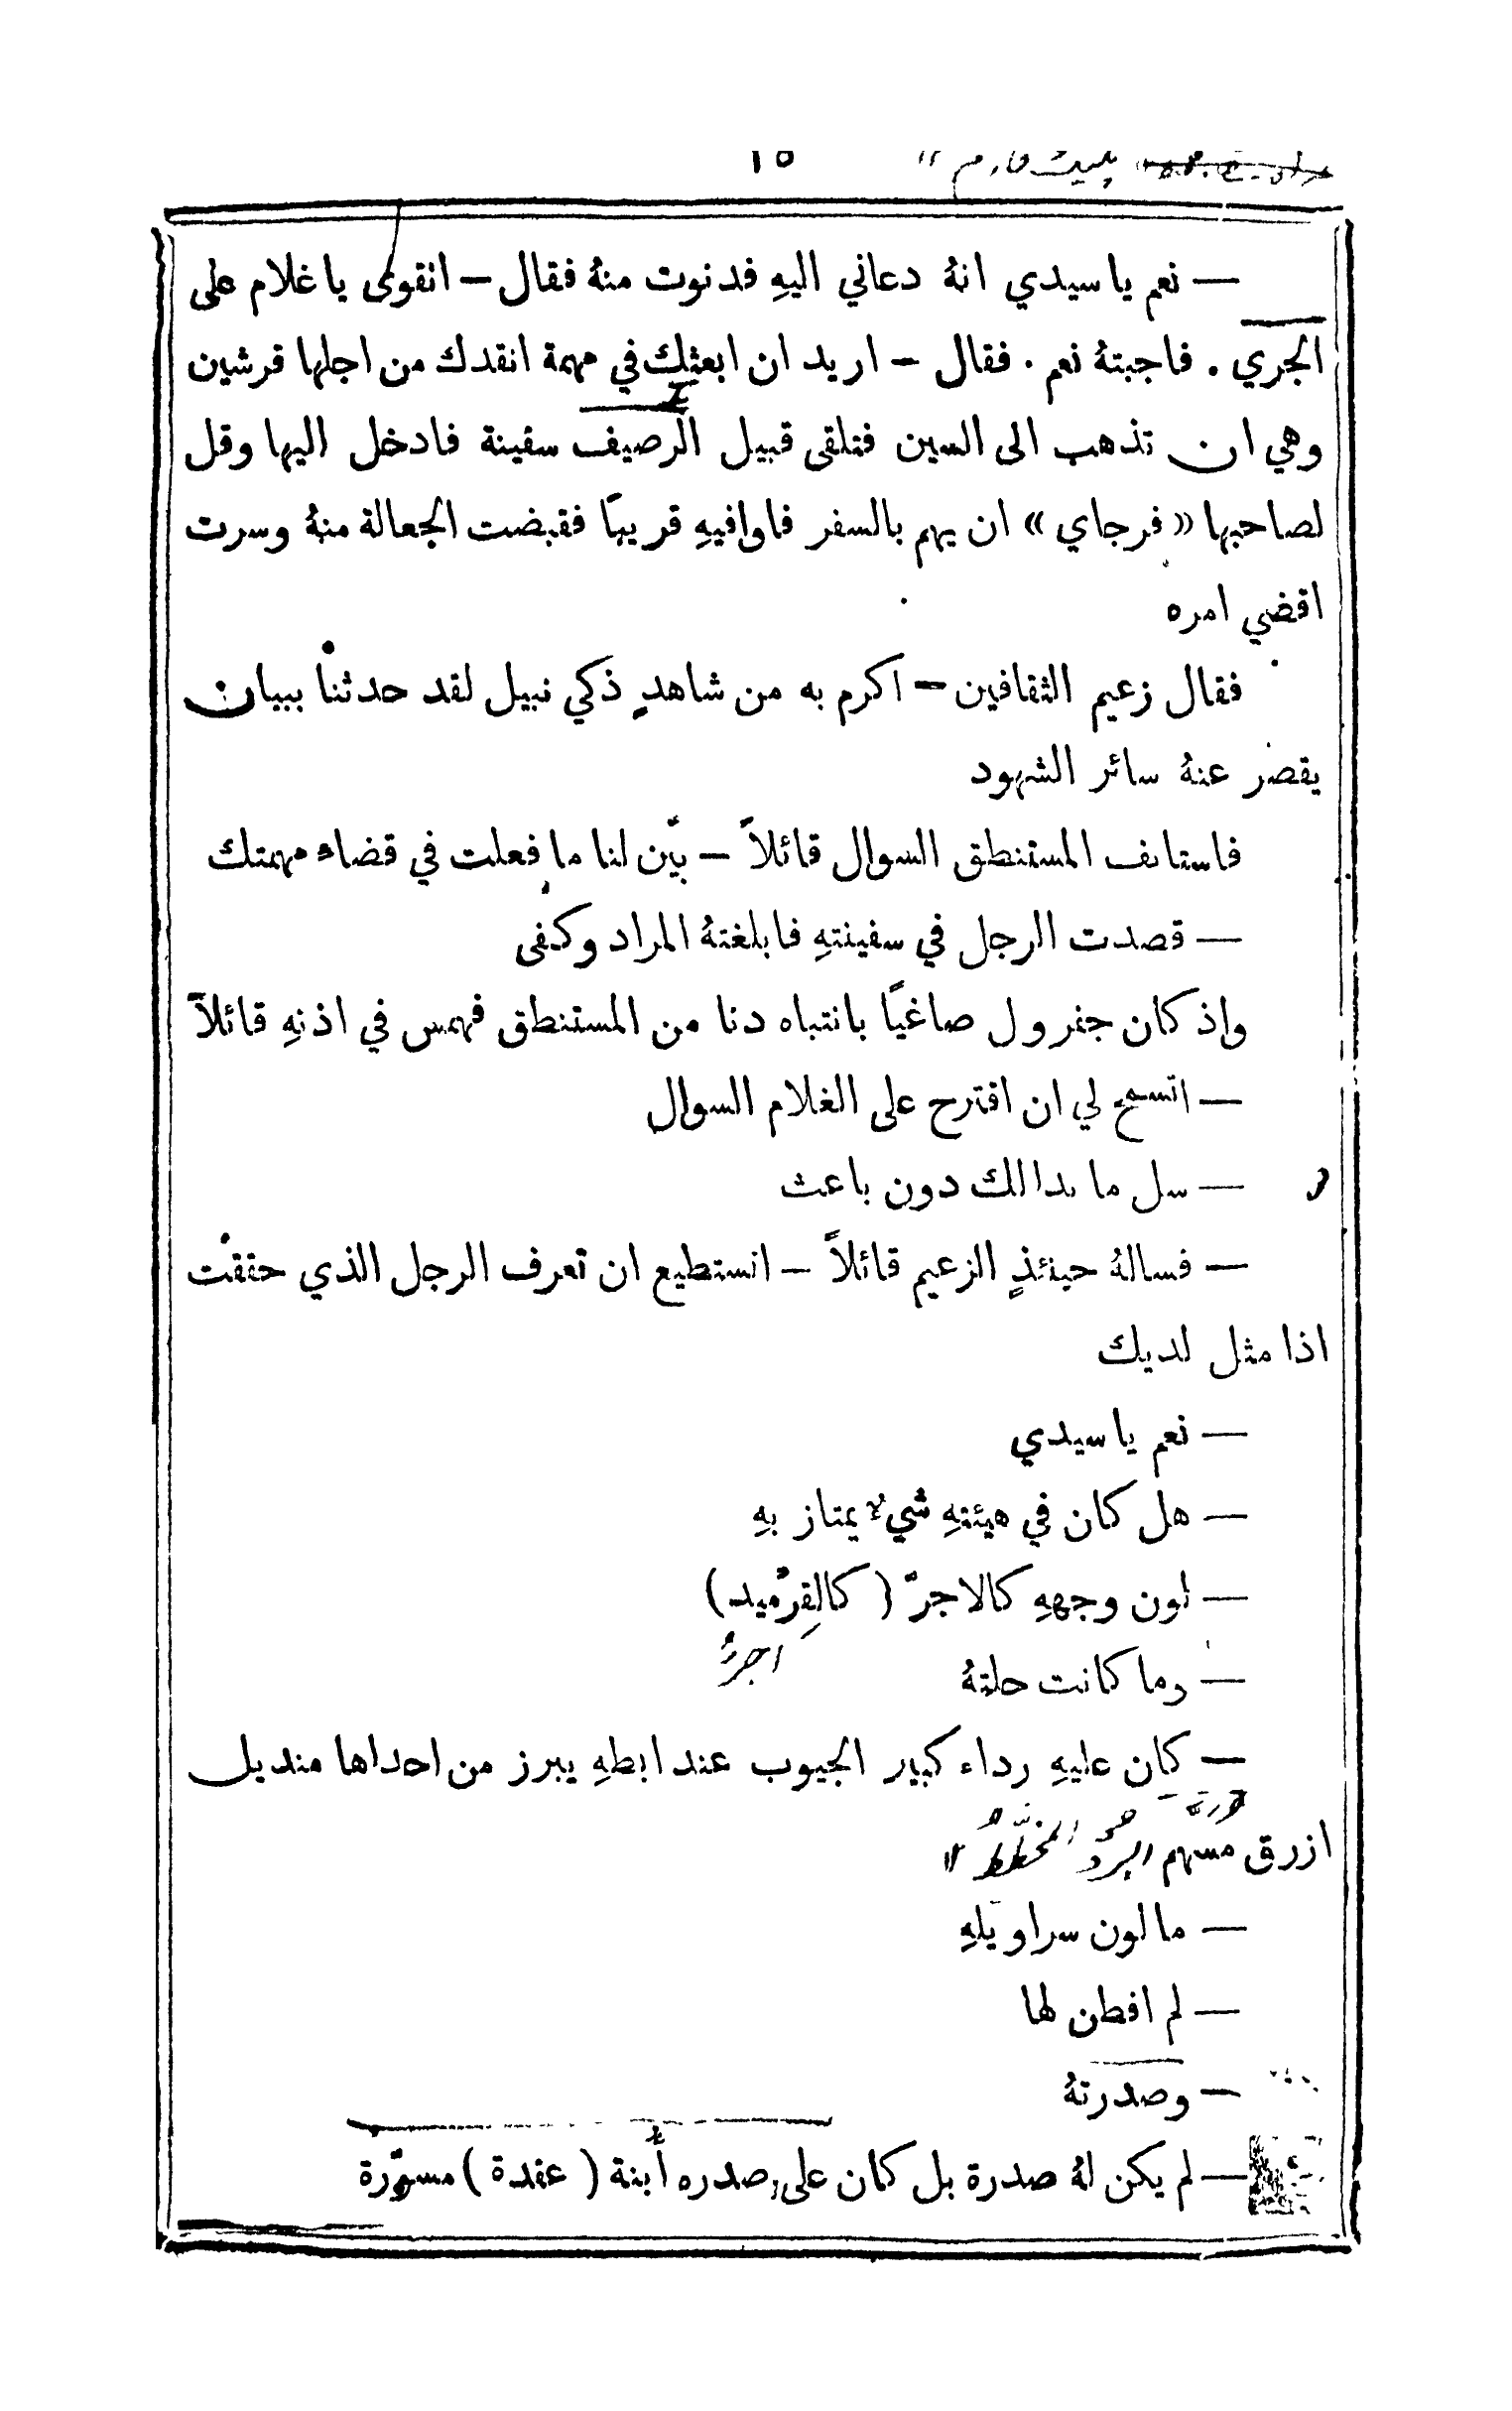 ١٥
— نعم يا سيدي انهُ دعاني اليهِ فدنوت منهُ فقال — اتقوى يا غلام على
الجري . فاجبتهُ نعم . فقال — اريد ان ابعثك في مهمة انقدك من اجلها قرشين
وهي ان تذهب الى السين فتلقى قبيل الرصيف سفينة فادخل اليها وقل
لصاحبها « فرجاي » ان يهم بالسفر فاوافيهِ قريبًا فقبضت الجعالة منهُ وسرت
اقضي امره
فقال زعيم الثقافين — اكرم به من شاهدٍ ذكي نبيل لقد حدثنا ببيان
يقصر عنهُ سائر الشهود
فاستانف المستنطق السوال قائلاً — بيّن لنا ما فعلت في قضاء مهمتك
— قصدت الرجل في سفينتهِ فابلغتهُ المراد وكفى
واذ كان جفرول صاغيًا بانتباه دنا من المستنطق فهمس في اذنهِ قائلاً
— اتسمح لي ان اقترح على الغلام السوال
— سل ما بدا لك دون باعث
— فسالهُ حينئذٍ الزعيم قائلاً — اتستطيع ان تعرف الرجل الذي حققت
اذا مثل لديك
— نعم يا سيدي
— هل كان في هيئتهِ شيء يمتاز بهِ
— لون وجههِ كالاجرّ ( كالقِرْميد )
اجرّ
— وما كانت حلتهُ
— كان عليهِ رداء كبير الجيوب عند ابطهِ يبرز من احداها منديل
ازرق مسهم البرد المخطط
— ما لون سراويلهِ
— لم افطن لها
— وصدرتهُ
— لم يكن لهُ صدرة بل كان على صدره أبنة ( عقدة ) مسوّرة